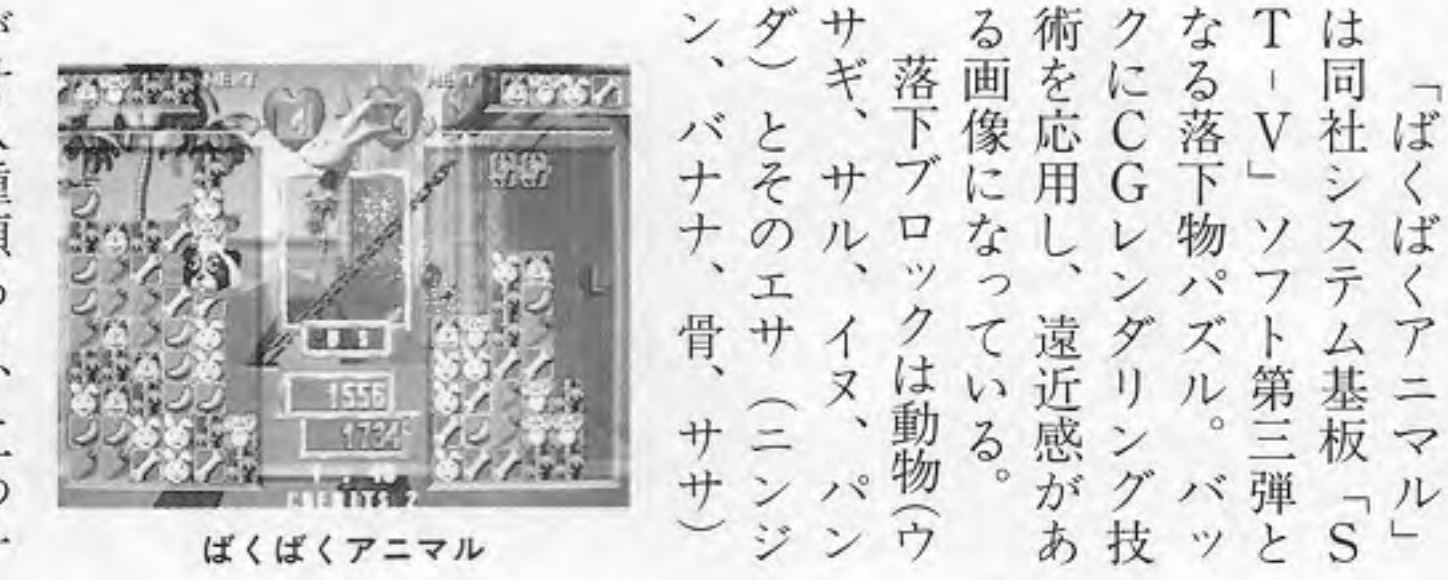 「ばくばくアニマル」
は同社システム基板「S
T-V」ソフト第三弾と
なる落下物パズル。バッ
クにCGレンダリング技
術を応用し、遠近感があ
る画像になっている。
落下ブロックは動物(ウ
サギ、サル、イヌ、パン
ダ)とそのエサ(ニンジ
ン、バナナ、骨、ササ)
NEXT
NEXT
1556
1734
CREDITS 2
ばくばくアニマル